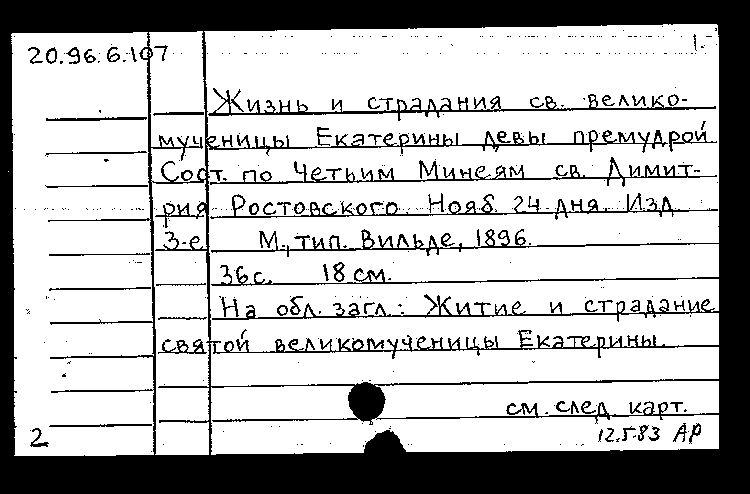 1.
20.96.6.107
Жизнь и страдания св. велико-
мученицы Екатерины девы премудрой
Сост. по Четьим Минеям св. Димит-
рия Ростовского Нояб. 24 дня. Изд
3-е М., тип. Вильде, 1896.
36 с. 18 см.
На обл. загл.: Житие и страдание
святой великомученицы Екатерины.
см. след. карт.
2 12.5.83 АР